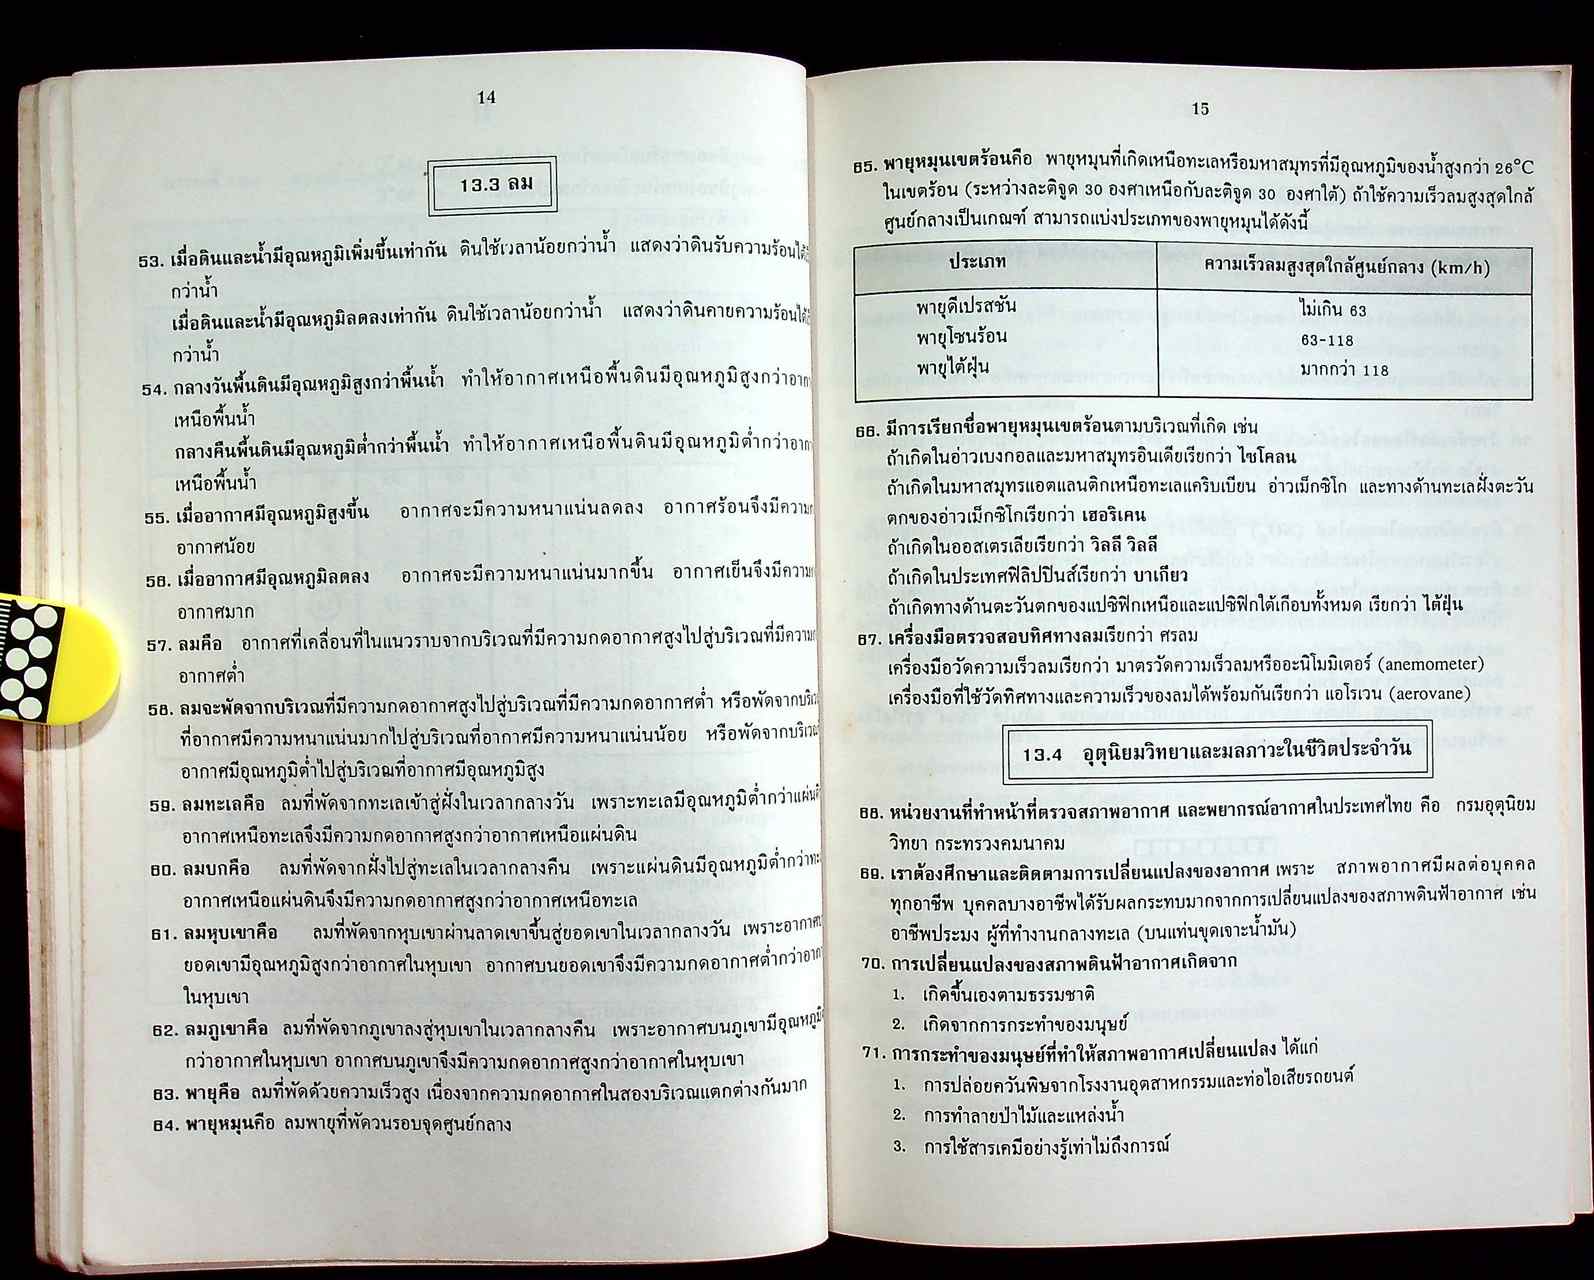 14
13.3 ลม
53. เมื่อดินและน้ำมีอุณหภูมิเพิ่มขึ้นเท่ากัน ดินใช้เวลาน้อยกว่าน้ำ แสดงว่าดินรับความร้อนได้
กว่าน้ำ
เมื่อดินและน้ำมีอุณหภูมิลดลงเท่ากัน ดินใช้เวลาน้อยกว่าน้ำ แสดงว่าดินคายความร้อนได้
กว่าน้ำ
54. กลางวันพื้นดินมีอุณหภูมิสูงกว่าพื้นน้ำ ทำให้อากาศเหนือพื้นดินมีอุณหภูมิสูงกว่า
เหนือพื้นน้ำ
กลางคืนพื้นดินมีอุณหภูมิต่ำกว่าพื้นน้ำ ทำให้อากาศเหนือพื้นดินมีอุณหภูมิต่ำกว่า
เหนือพื้นน้ำ
55. เมื่ออากาศมีอุณหภูมิสูงขึ้น อากาศจะมีความหนาแน่นลดลง อากาศร้อนจึงมีความ
อากาศน้อย
56. เมื่ออากาศมีอุณหภูมิลดลง อากาศจะมีความหนาแน่นมากขึ้น อากาศเย็นจึงมีความ
อากาศมาก
57. ลมคือ อากาศที่เคลื่อนที่ในแนวราบจากบริเวณที่มีความกดอากาศสูงไปสู่บริเวณที่มีความ
อากาศต่ำ
58. ลมจะพัดจากบริเวณที่มีความกดอากาศสูงไปสู่บริเวณที่มีความกดอากาศต่ำ หรือพัดจาก
ที่อากาศมีความหนาแน่นมากไปสู่บริเวณที่อากาศมีความหนาแน่นน้อย หรือพัดจาก
อากาศมีอุณหภูมิต่ำไปสู่บริเวณที่อากาศมีอุณหภูมิสูง
59. ลมทะเลคือ ลมที่พัดจากทะเลเข้าสู่ฝั่งในเวลากลางวัน เพราะทะเลมีอุณหภูมิต่ำกว่า
อากาศเหนือทะเลจึงมีความกดอากาศสูงกว่าอากาศเหนือแผ่นดิน
60. ลมบกคือ ลมที่พัดจากฝั่งไปสู่ทะเลในเวลากลางคืน เพราะแผ่นดินมีอุณหภูมิต่ำกว่า
อากาศเหนือแผ่นดินจึงมีความกดอากาศสูงกว่าอากาศเหนือทะเล
61. ลมหุบเขาคือ ลมที่พัดจากหุบเขาผ่านลาดเขาขึ้นสู่ยอดเขาในเวลากลางวัน เพราะอากาศ
ยอดเขามีอุณหภูมิสูงกว่าอากาศในหุบเขา อากาศบนยอดเขาจึงมีความกดอากาศต่ำกว่า
ในหุบเขา
62. ลมภูเขาคือ ลมที่พัดจากภูเขาลงสู่หุบเขาในเวลากลางคืน เพราะอากาศบนภูเขามีอุณหภูมิ
กว่าอากาศในหุบเขา อากาศบนภูเขาจึงมีความกดอากาศสูงกว่าอากาศในหุบเขา
63. พายุคือ ลมที่พัดด้วยความเร็วสูง เนื่องจากความกดอากาศในสองบริเวณแตกต่างกันมาก
64. พายุหมุนคือ ลมพายุที่พัดวนรอบจุดศูนย์กลาง
15
65. พายุหมุนเขตร้อนคือ พายุหมุนที่เกิดเหนือทะเลหรือมหาสมุทรที่มีอุณหภูมิของน้ำสูงกว่า 26°C
ในเขตร้อน (ระหว่างละติจูด 30 องศาเหนือกับละติจูด 30 องศาใต้) ถ้าใช้ความเร็วลมสูงสุดใกล้
ศูนย์กลางเป็นเกณฑ์ สามารถแบ่งประเภทของพายุหมุนได้ดังนี้
ประเภท ความเร็วลมสูงสุดใกล้ศูนย์กลาง (km/h)
พายุดีเปรสชัน ไม่เกิน 63
พายุโซนร้อน 63-118
พายุไต้ฝุ่น มากกว่า 118
66. มีการเรียกชื่อพายุหมุนเขตร้อนตามบริเวณที่เกิด เช่น
ถ้าเกิดในอ่าวเบงกอลและมหาสมุทรอินเดียเรียกว่า ไซโคลน
ถ้าเกิดในมหาสมุทรแอตแลนติกเหนือทะเลแคริบเบียน อ่าวเม็กซิโก และทางด้านทะเลฝั่งตะวัน
ตกของอ่าวเม็กซิโกเรียกว่า เฮอริเคน
ถ้าเกิดในออสเตรเลียเรียกว่า วิลลี วิลลี
ถ้าเกิดในประเทศฟิลิปปินส์เรียกว่า บาเกียว
ถ้าเกิดทางด้านตะวันตกของแปซิฟิกเหนือและแปซิฟิกใต้เกือบทั้งหมด เรียกว่า ไต้ฝุ่น
67. เครื่องมือตรวจสอบทิศทางลมเรียกว่า ศรลม
เครื่องมือวัดความเร็วลมเรียกว่า มาตรวัดความเร็วลมหรืออะนิโมมิเตอร์ (anemometer)
เครื่องมือที่ใช้วัดทิศทางและความเร็วของลมได้พร้อมกันเรียกว่า แอโรเวน (aerovane)
13.4 อุตุนิยมวิทยาและมลภาวะในชีวิตประจำวัน
68. หน่วยงานที่ทำหน้าที่ตรวจสภาพอากาศ และพยากรณ์อากาศในประเทศไทย คือ กรมอุตุนิยม
วิทยา กระทรวงคมนาคม
69. เราต้องศึกษาและติดตามการเปลี่ยนแปลงของอากาศ เพราะ สภาพอากาศมีผลต่อบุคคล
ทุกอาชีพ บุคคลบางอาชีพได้รับผลกระทบมากจากการเปลี่ยนแปลงของสภาพดินฟ้าอากาศ เช่น
อาชีพประมง ผู้ที่ทำงานกลางทะเล (บนแท่นขุดเจาะน้ำมัน)
70. การเปลี่ยนแปลงของสภาพดินฟ้าอากาศเกิดจาก
1. เกิดขึ้นเองตามธรรมชาติ
2. เกิดจากการกระทำของมนุษย์
71. การกระทำของมนุษย์ที่ทำให้สภาพอากาศเปลี่ยนแปลง ได้แก่
1. การปล่อยควันพิษจากโรงงานอุตสาหกรรมและท่อไอเสียรถยนต์
2. การทำลายป่าไม้และแหล่งน้ำ
3. การใช้สารเคมีอย่างรู้เท่าไม่ถึงการณ์